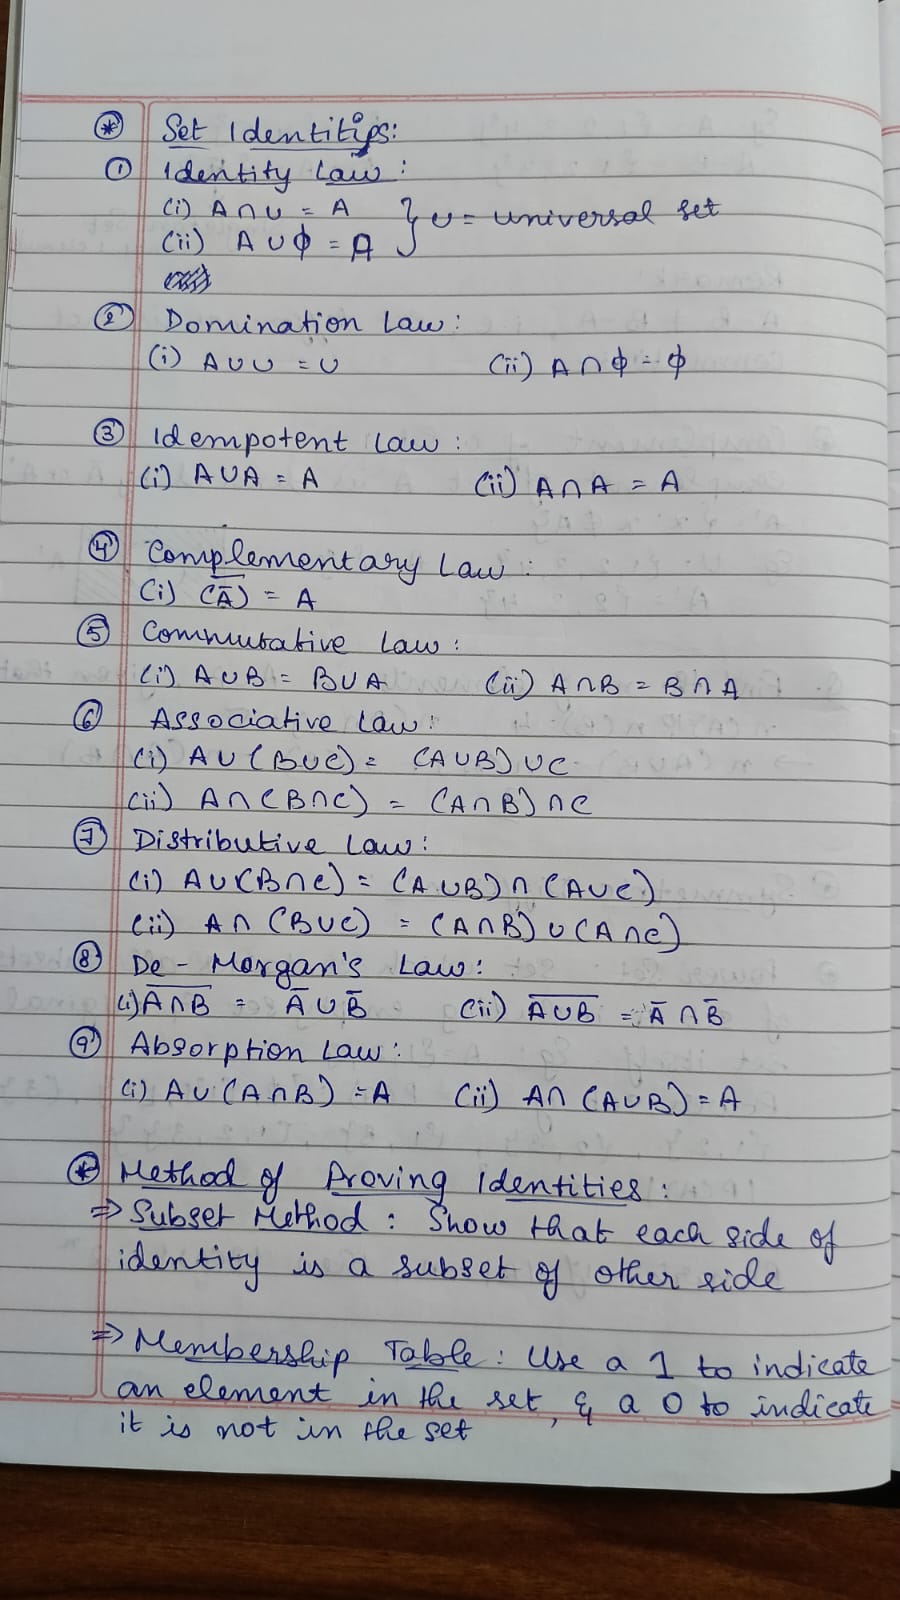 * Set Identities:
① Identity Law:
(i) A ∩ U = A } U = universal set
(ii) A ∪ ϕ = A
② Domination Law:
(i) A ∪ U = U (ii) A ∩ ϕ = ϕ
③ Idempotent Law:
(i) A ∪ A = A (ii) A ∩ A = A
④ Complementary Law:
(i) (A̅)̅ = A
⑤ Commutative Law:
(i) A ∪ B = B ∪ A (ii) A ∩ B = B ∩ A
⑥ Associative Law:
(i) A ∪ (B ∪ C) = (A ∪ B) ∪ C
(ii) A ∩ (B ∩ C) = (A ∩ B) ∩ C
⑦ Distributive Law:
(i) A ∪ (B ∩ C) = (A ∪ B) ∩ (A ∪ C)
(ii) A ∩ (B ∪ C) = (A ∩ B) ∪ (A ∩ C)
⑧ De-Morgan's Law:
(i) A̅ ̅∩̅ ̅B̅ = A̅ ∪ B̅ (ii) A̅ ̅∪̅ ̅B̅ = A̅ ∩ B̅
⑨ Absorption Law:
(i) A ∪ (A ∩ B) = A (ii) A ∩ (A ∪ B) = A
* Method of Proving Identities:
⇒ Subset Method: Show that each side of
identity is a subset of other side
⇒ Membership Table: Use a 1 to indicate
an element in the set, & a 0 to indicate
it is not in the set